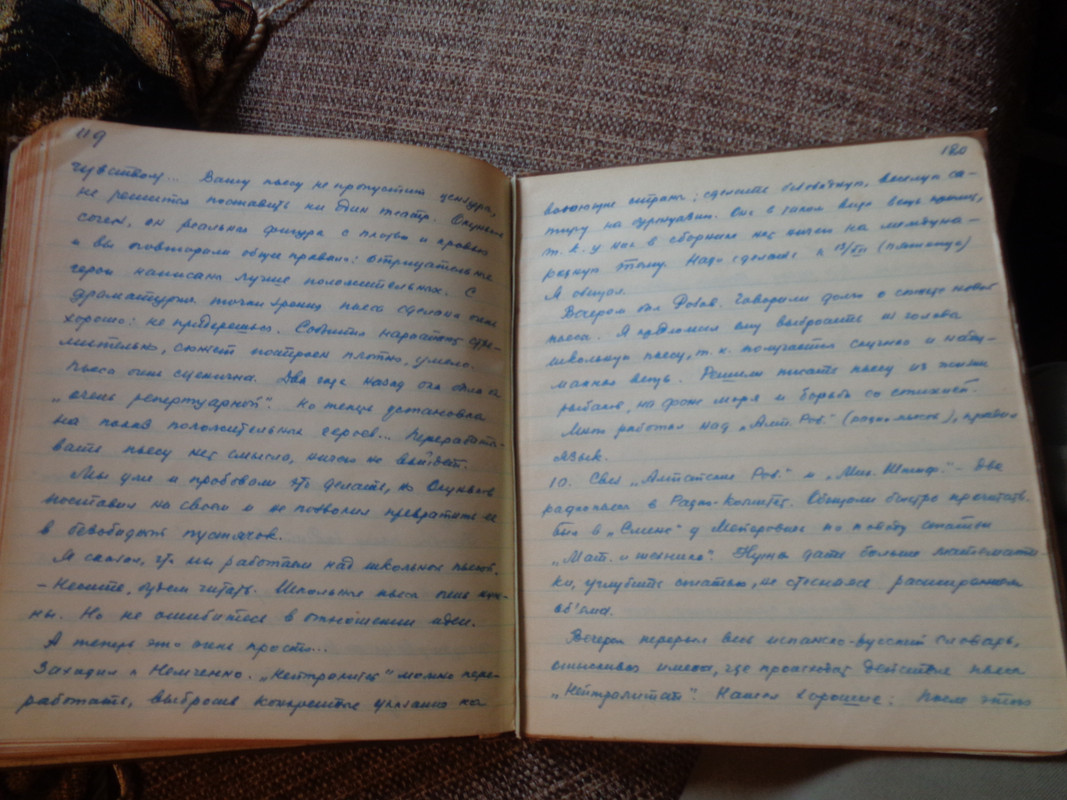 119
чувством... Вашу пьесу не пропустит цензура,
не решится поставить ни один театр. Окунев
сочен, он реальная фигура с плотью и кровью
и вы повторили общее правило: отрицательные
герои написаны лучше положительных. С
драматургич. точки зрения пьеса сделана очень
хорошо: не придерешься. События нарастают стре-
мительно, сюжет построен плотно, умело.
Пьеса очень сценична. Два года назад она была бы
„очень репертуарной". Но теперь установка
на показ положительных героев... Перерабаты-
вать пьесу нет смысла, ничего не выйдет.
Мы уже и пробовали это делать, но Окунев
поставил на своем и не позволил превратить ее
в безобидный пустячок.
Я сказал, что мы работаем над школьной пьесой.
– Несите, будем читать. Школьные пьесы очень нуж-
ны. Но не ошибитесь в отношении идеи.
А теперь это очень просто...
Заходил к Немченко. „Нейтралитет" можно пере-
работать, выбросив конкретные указания на
120
воюющие страны; сделайте безобидную, веселую са-
тиру на буржуазию. Она в таком виде вещь нужна,
т. к. у нас в сборнике нет ничего на междуна-
родную тему. Надо сделать к 15/VII (пятница)
Я обещал.
Вечером был Розов. Говорили долго о сюжете новой
пьесы. Я предложил ему выбросить из головы
школьную пьесу, т. к. получается скучная и наду-
манная вещь. Решили писать пьесу из жизни
рыбаков, на фоне моря и борьбы со стихией.
Много работал над „Алт. Роб." (радиопьеса), правил
язык.
10. Свез „Алтайские Роб." и „Мих. Штиф." – две
радиопьесы в Радио-Комитет. Обещали быстро прочитать.
Был в „Смене" у по поводу статьи
„Мат. и шахматы". Нужно дать больше математи-
ки, углубить статью, не стесняясь расширением
об'ема.
Вечером перерыл весь испанско-русский словарь,
отыскивая имена, где происходит действие пьесы
„Нейтралитет". Нашел хорошие; после этого